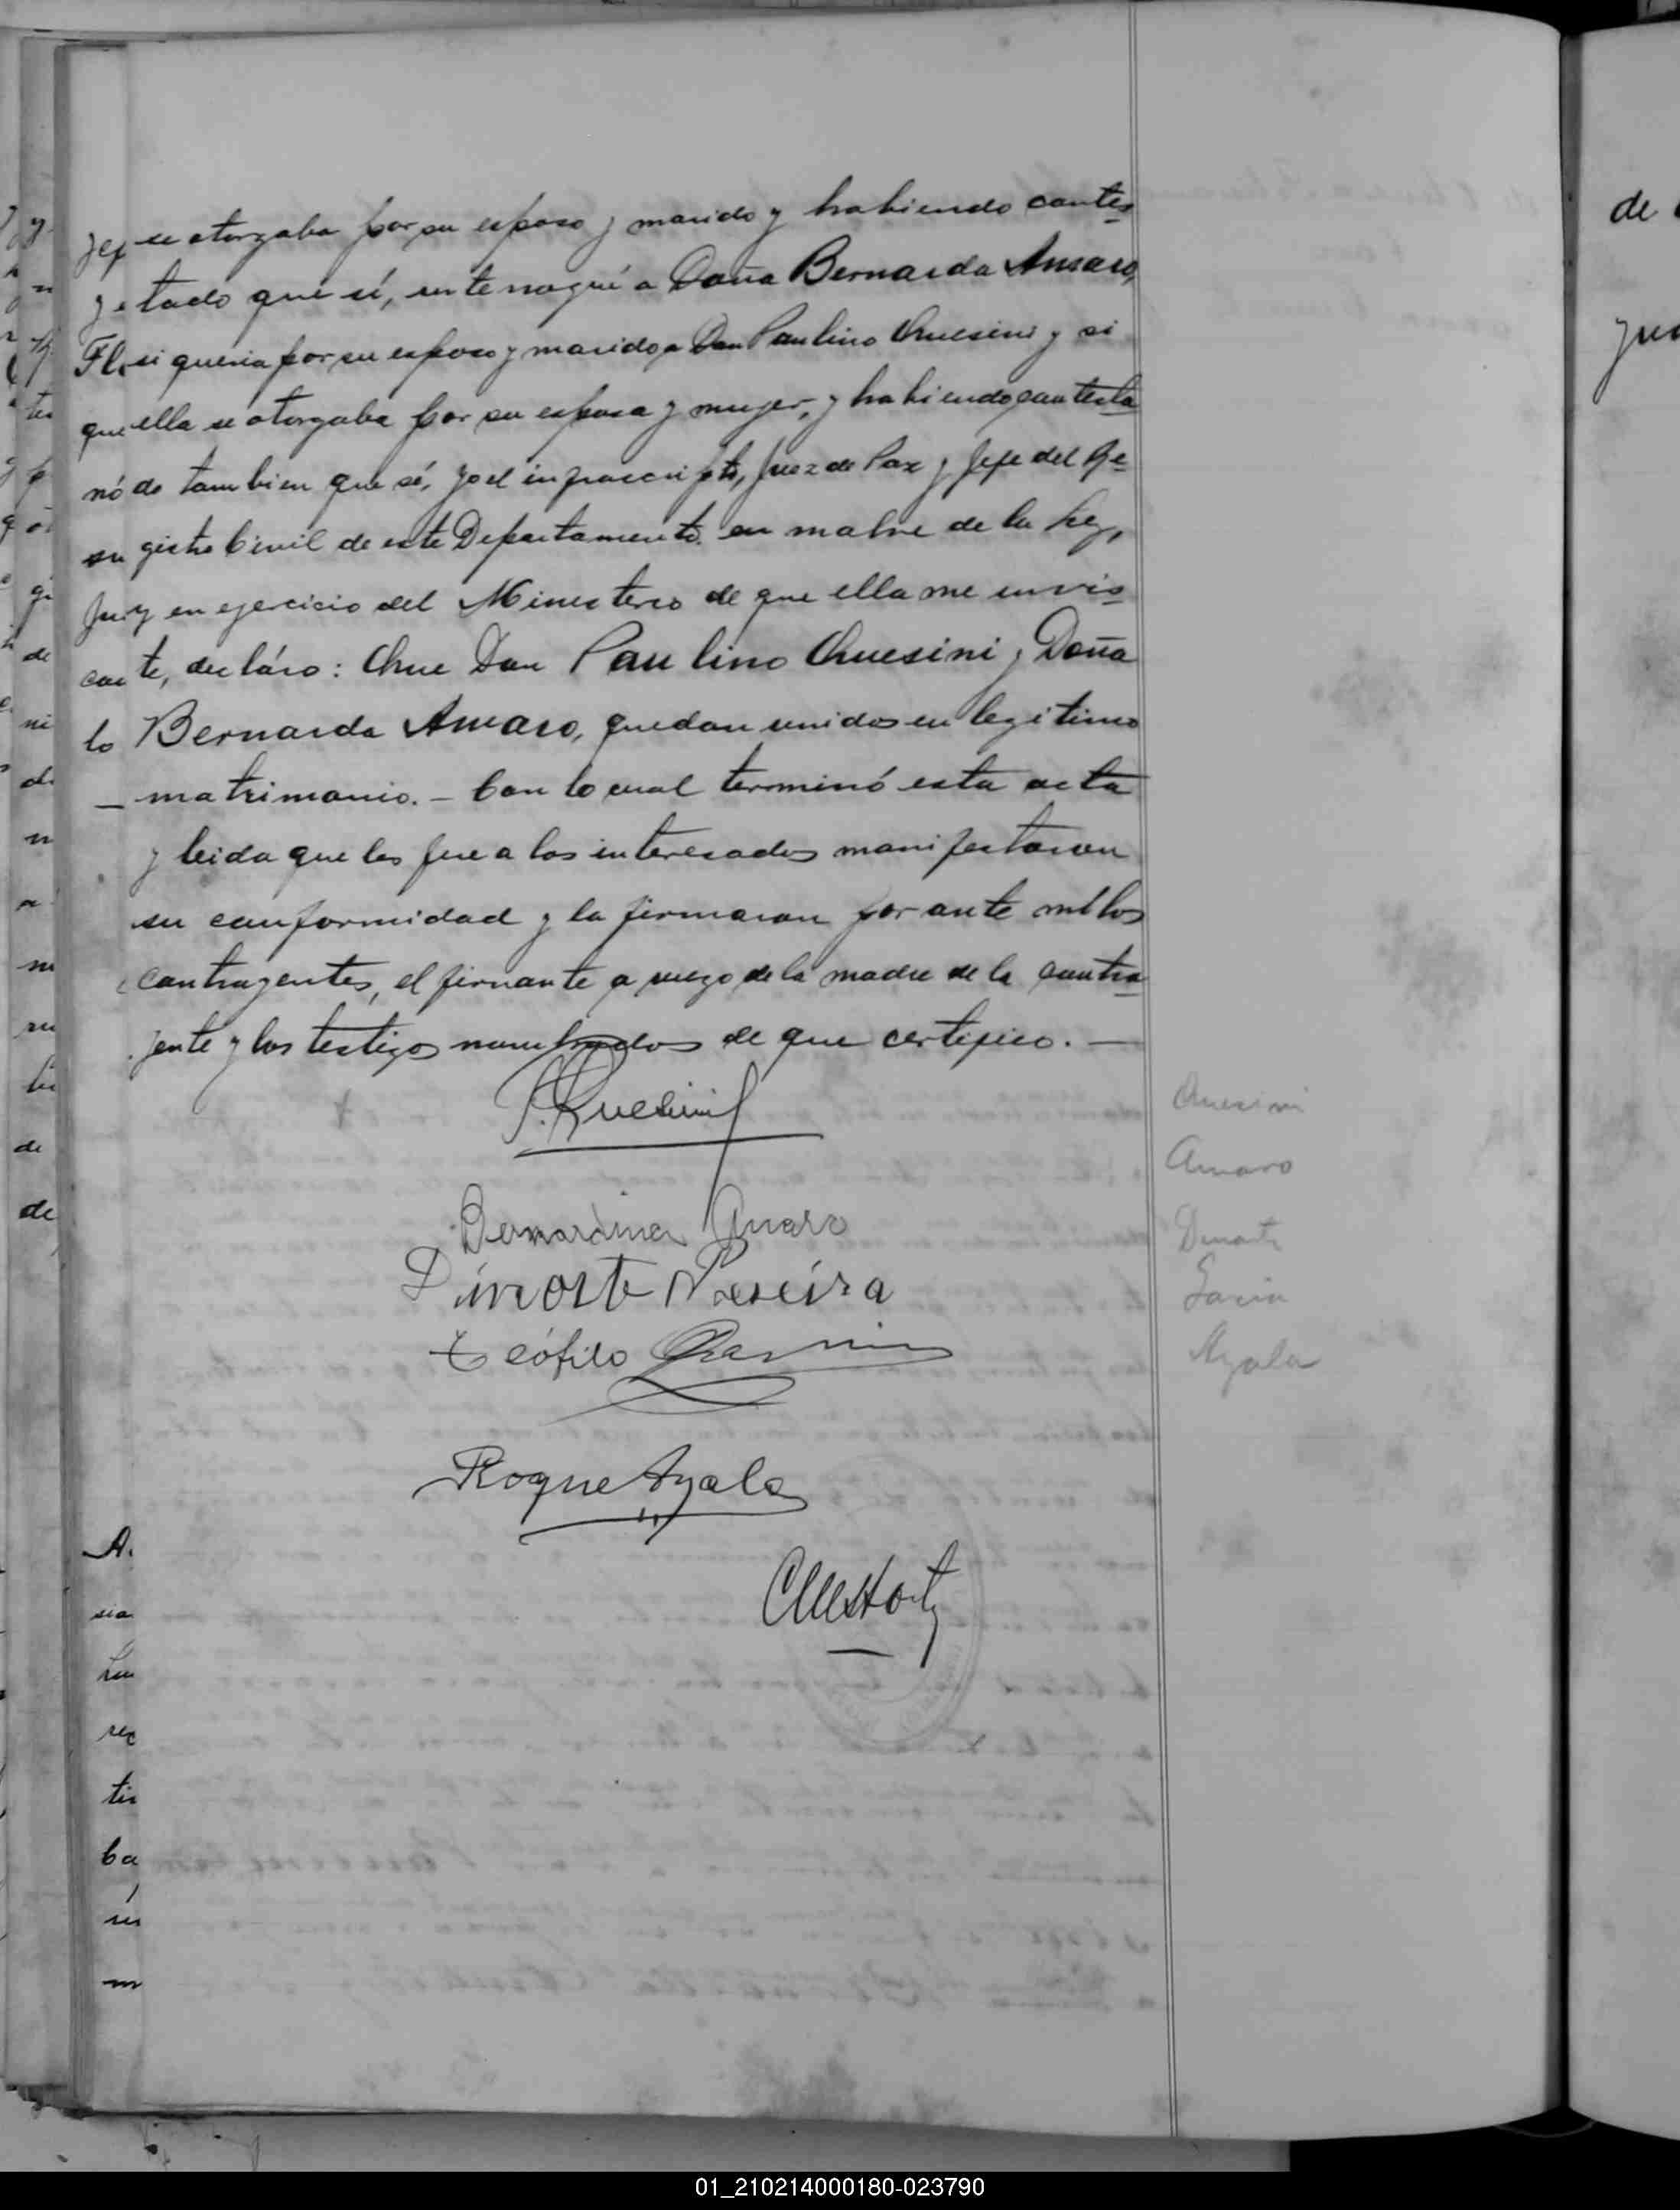 se otorgaba por su esposo y marido y habiendo contes
tado que sí, interrogué a Doña Bernarda Amaro,
si queria por su esposo y marido a Don Paulino Quesini y si
ella se otorgaba por su esposa y mujer, y habiendo contesta
do tambien que sí, yo el infrascripto, Juez de Paz y Jefe del Re
gistro Civil de este Departamento en nombre de la Ley,
y en ejercicio del Ministerio de que ella me invis
te, decláro: Que Don Paulino Quesini y Doña
Bernarda Amaro, quedan unidos en legitimo
matrimonio. – Con lo cual terminó esta acta
y leida que les fue a los interesados manifestaron
su conformidad y la firmaron por ante mi los
contrayentes, el firmante a ruego de la madre de la contra
yente y los testigos nombrados de que certifico. —
P. Quesini
Bernardina Amaro
Duarte Pereira
Teófilo
Roque Ayala
Quesini
Amaro
Duarte
Ayala
de
01_210214000180-023790